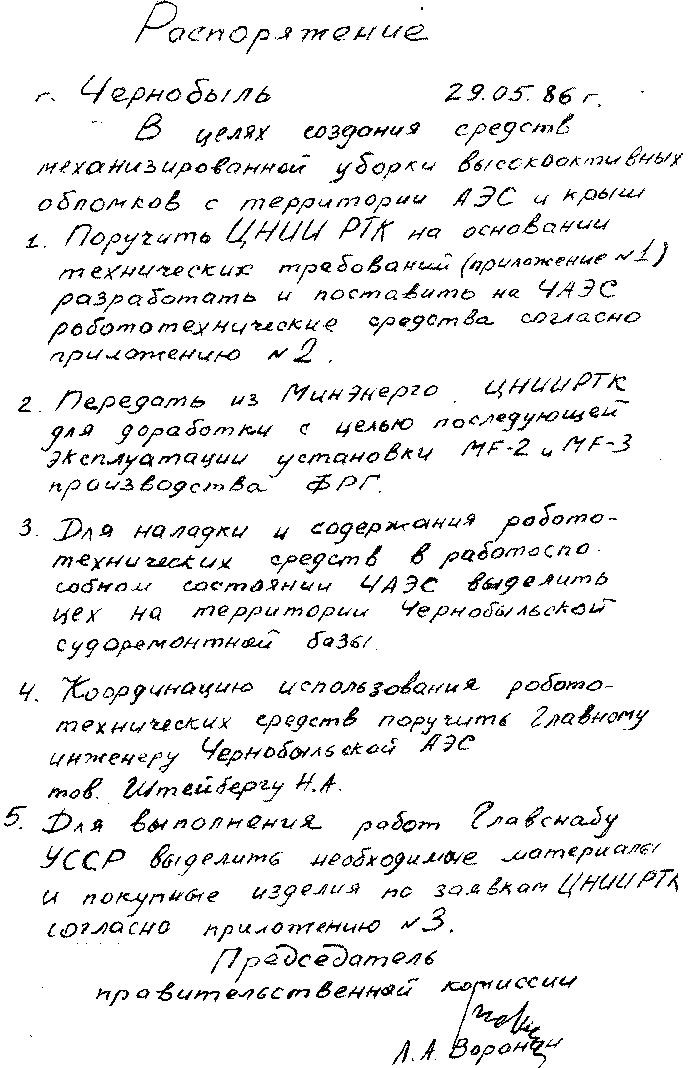 Распоряжение
г. Чернобыль 29.05.86 г.
В целях создания средств
механизированной уборки высокоактивных
обломков с территории АЭС и крыш
1. Поручить ЦНИИ РТК на основании
технических требований (приложение №1)
разработать и поставить на ЧАЭС
робототехнические средства согласно
приложению №2.
2. Передать из Минэнерго ЦНИИРТК
для доработки с целью последующей
эксплуатации установки MF-2 и MF-3
производства ФРГ.
3. Для наладки и содержания робото-
технических средств в работоспо-
собном состоянии ЧАЭС выделить
цех на территории Чернобыльской
судоремонтной базы.
4. Координацию использования робото-
технических средств поручить Главному
инженеру Чернобыльской АЭС
тов. Штейбергу Н.А.
5. Для выполнения работ Главснабу
УССР выделить необходимые материалы
и покупные изделия по заявкам ЦНИИРТК
согласно приложению №3.
Председатель
правительственной комиссии
Л.А. Воронин